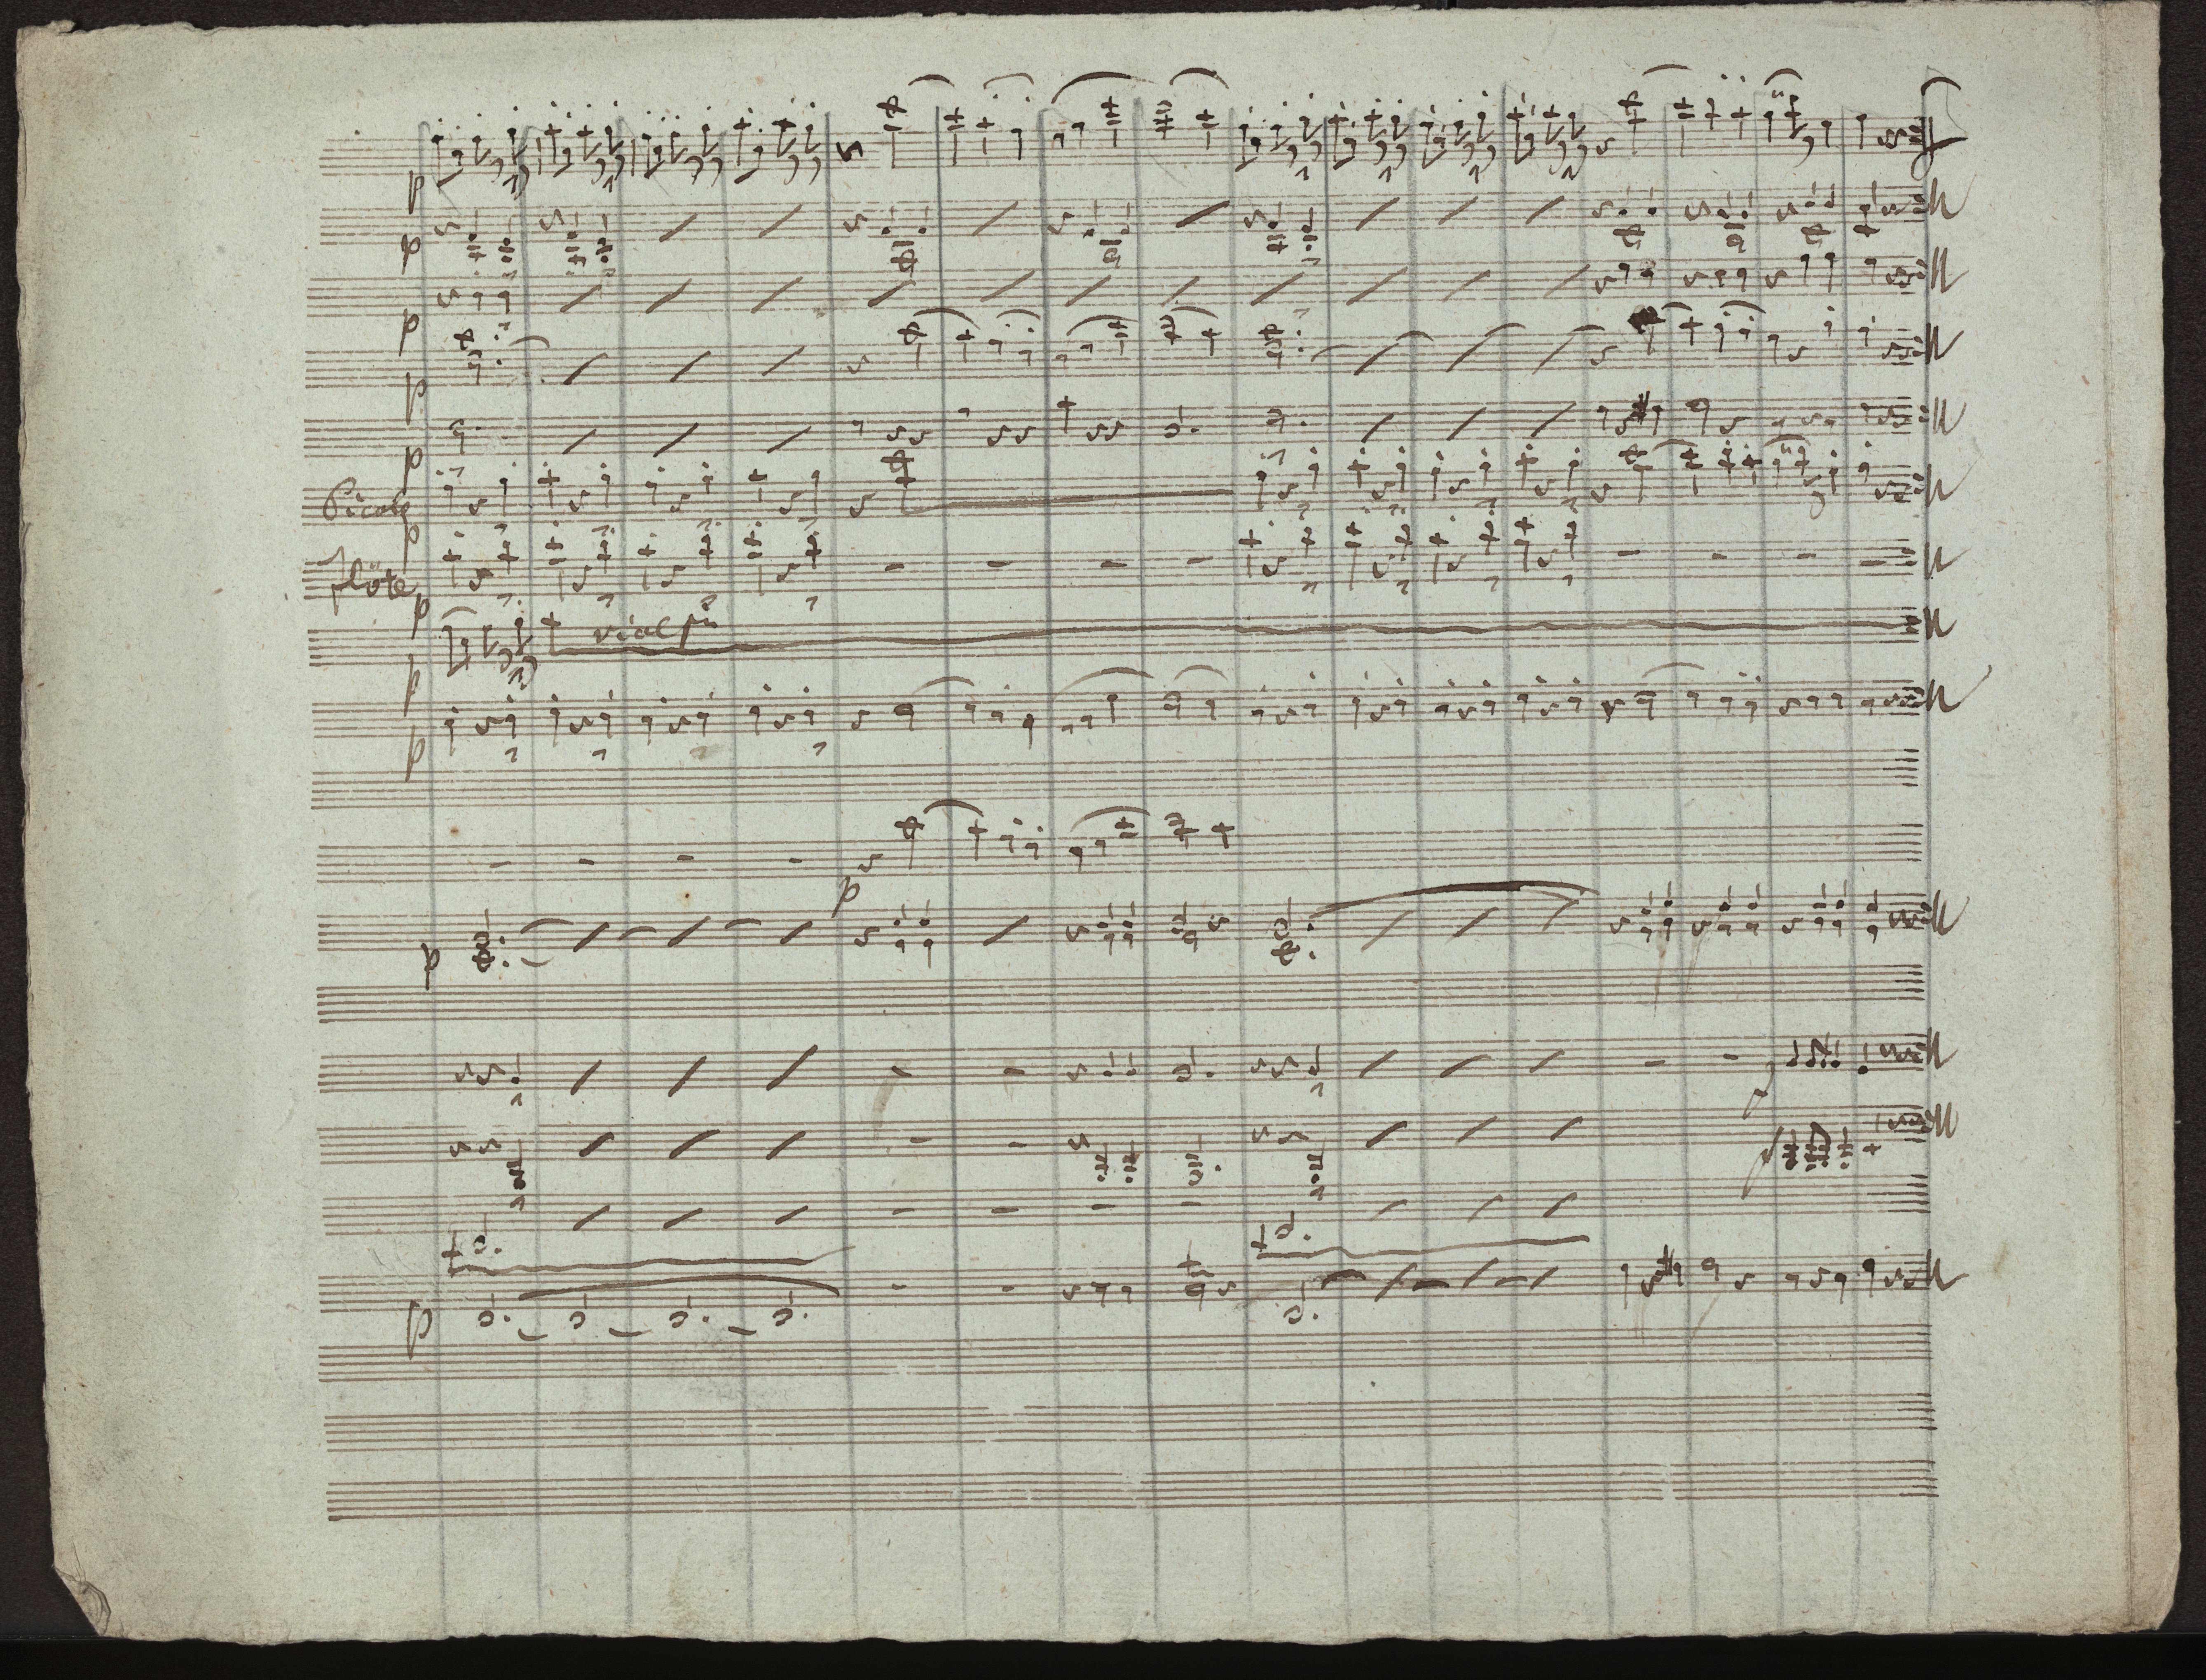 p
p
p
p
p
Picolo
p
flöte
p
viol pm̄o
p
p
p
p
p